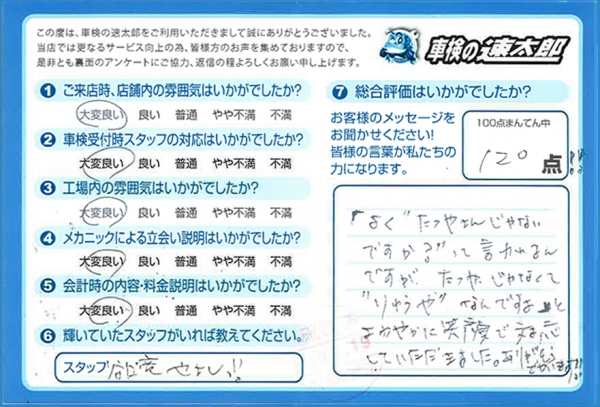 この度は、車検の速太郎をご利用いただきまして誠にありがとうございました。
当店では更なるサービス向上の為、皆様方のお声を集めておりますので、
是非とも裏面のアンケートにご協力、返信の程よろしくお願い申し上げます。
車検の速太郎
1 ご来店時、店舗内の雰囲気はいかがでしたか?
大変良い 良い 普通 やや不満 不満
2 車検受付時スタッフの対応はいかがでしたか?
大変良い 良い 普通 やや不満 不満
3 工場内の雰囲気はいかがでしたか?
大変良い 良い 普通 やや不満 不満
4 メカニックによる立会い説明はいかがでしたか?
大変良い 良い 普通 やや不満 不満
5 会計時の内容・料金説明はいかがでしたか?
大変良い 良い 普通 やや不満 不満
6 輝いていたスタッフがいれば教えてください。
スタッフ
7 総合評価はいかがでしたか?
お客様のメッセージを
お聞かせください!
皆様の言葉が私たちの
力になります。
100点まんてん中
120点!!
よく"たつやさんじゃない
ですか?"って言われるん
ですが、たつやじゃなくて
"りゅうや"なんですよ、と
さわやかに笑顔で対応
していただきました。ありがとう
ございます!!